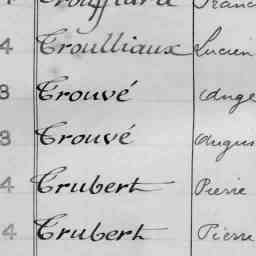 4 Troulliaux Lucien
3 Trouvé Ange
3 Trouvé Augus
4 Trubert Pierre
4 Trubert Pierre